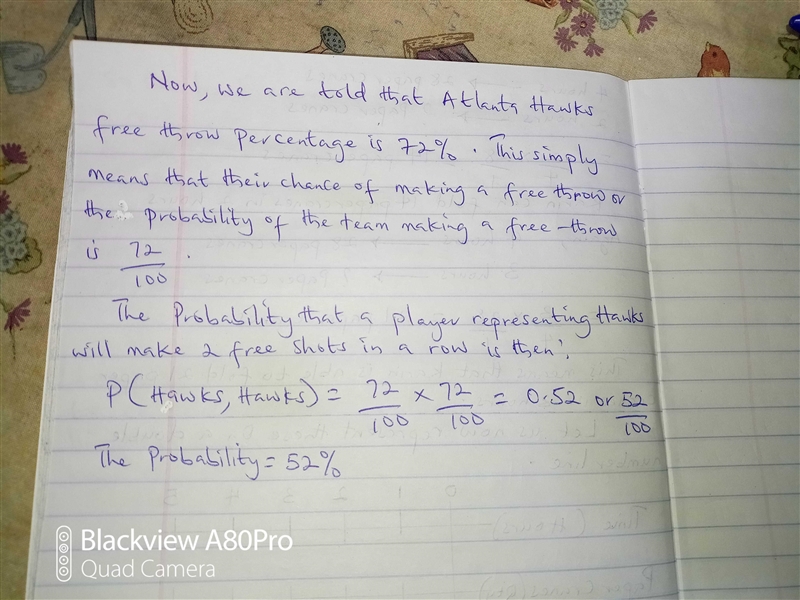 Now, we are told that Atlanta Hawks
free throw percentage is 72%. This simply
means that their chance of making a free throw or
the probability of the team making a free-throw
is 72/100.
The Probability that a player representing Hawks
will make 2 free shots in a row is then:
P(Hawks, Hawks) = 72/100 × 72/100 = 0.52 or 52/100
The Probability = 52%
0 1 2 3 4 5
Blackview A80Pro
Quad Camera